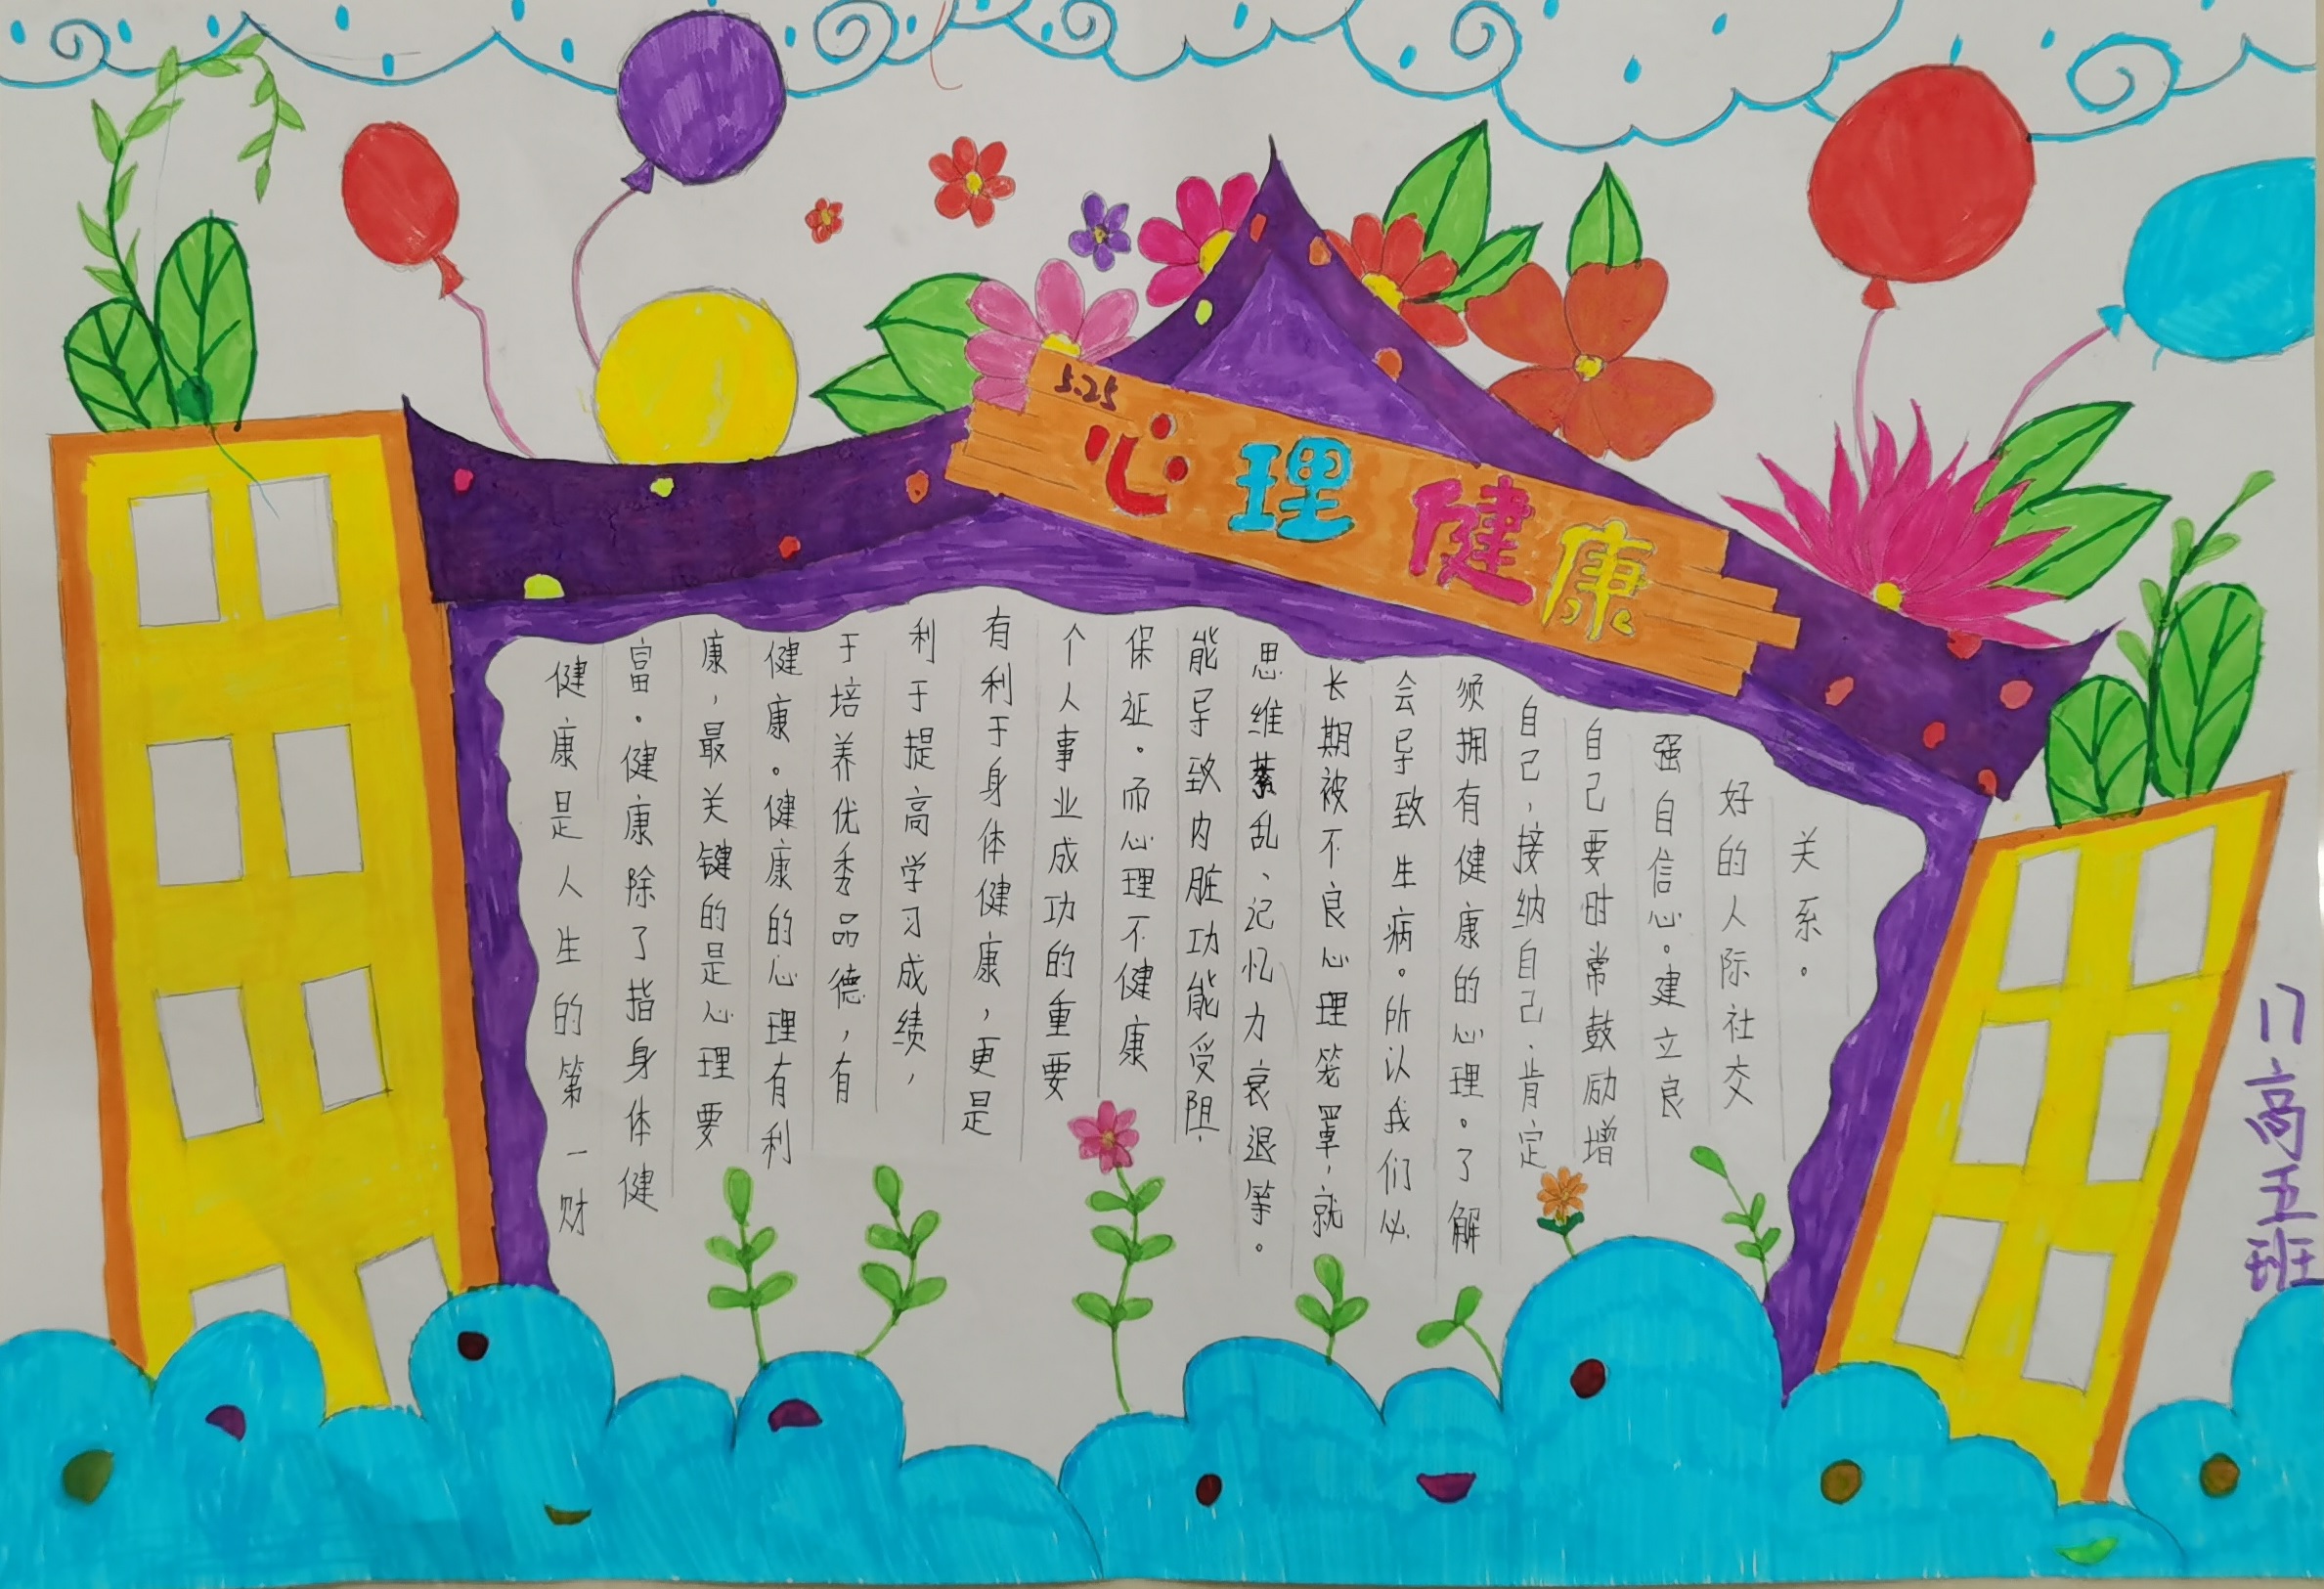 5.25
心理健康
健康是人生的第一财
富。健康除了指身体健
康，最关键的是心理要
健康。健康的心理有利
于培养优秀品德，有
利于提高学习成绩，
有利于身体健康，更是
个人事业成功的重要
保证。而心理不健康
能导致内脏功能受阻、
思维紊乱、记忆力衰退等。
长期被不良心理笼罩，就
会导致生病。所以我们必
须拥有健康的心理。了解
自己，接纳自己，肯定
自己要时常鼓励增
强自信心。建立良
好的人际社交
关系。
17高五班